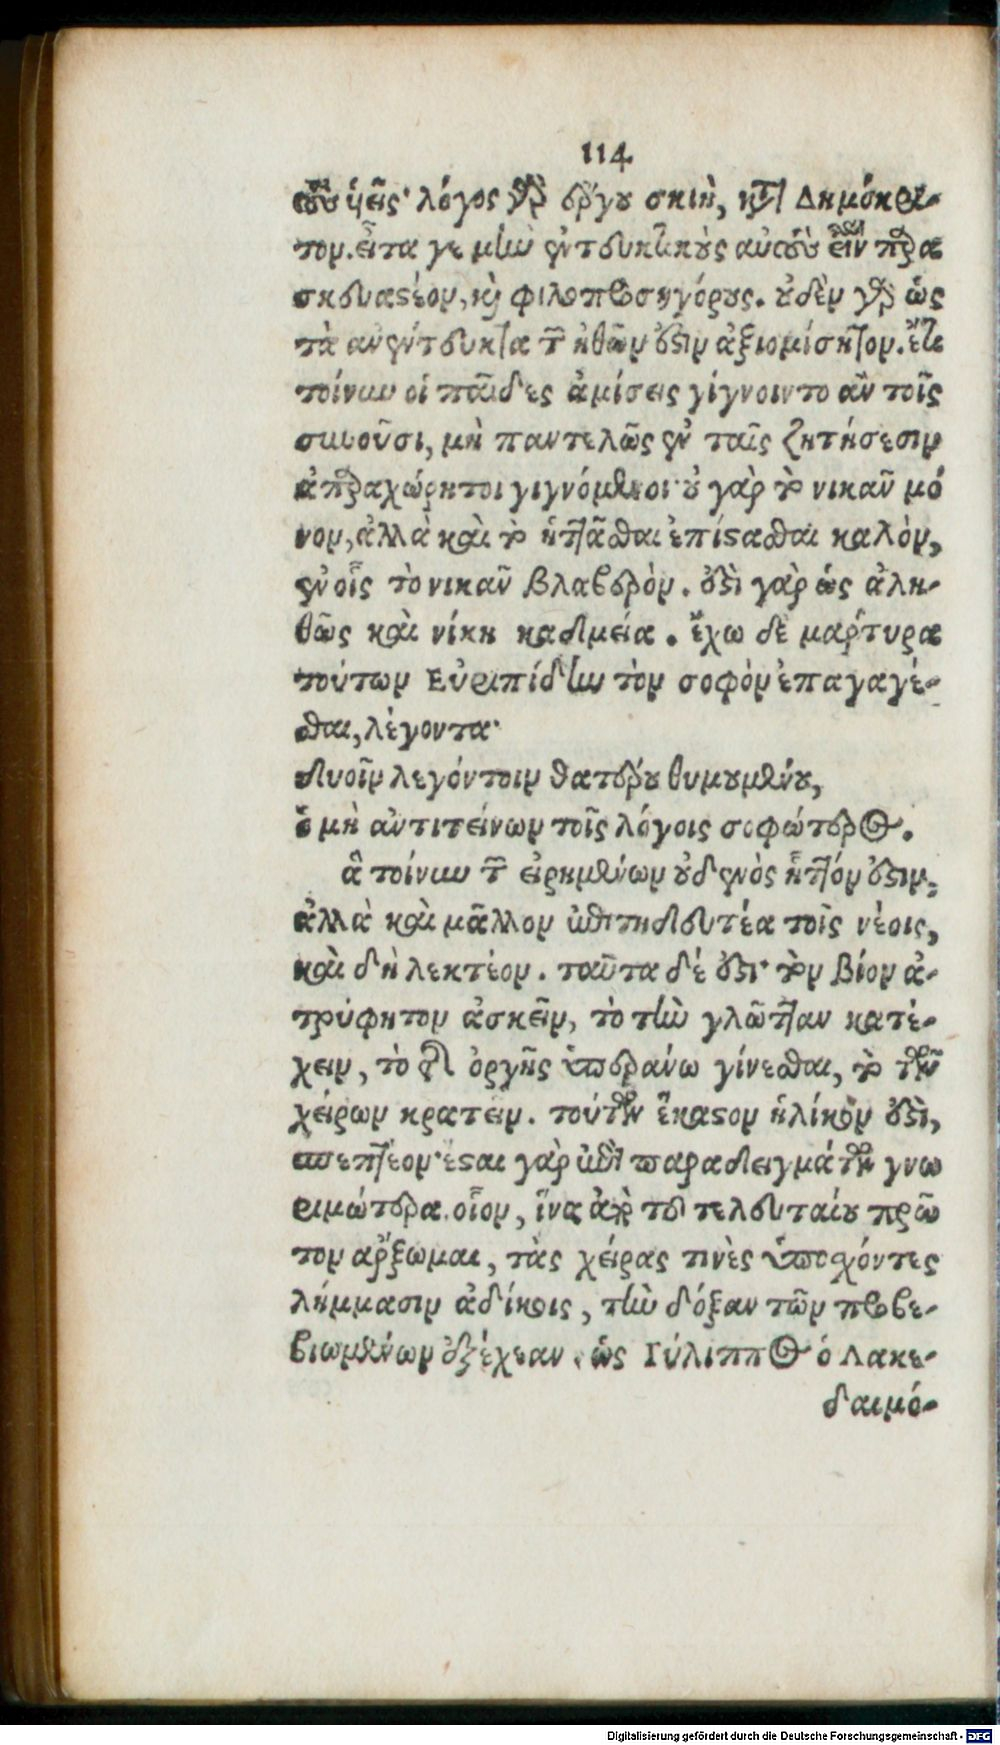 114
λόγος γὰρ ἔργου σκιὴ, κατὰ Δημόκρι-
τον. εἶτα γε μὴν ἐντευκτικοὺς αὐτοὺς εἶναι παρα
σκευαστέον, καὶ φιλοπροσηγόρους. οὐδὲν γὰρ ὡς
τὰ ἀνέντευκτα τῶν ἠθῶν ἐστιν ἀξιομίσητον. ἔτι
τοίνυν οἱ παῖδες ἀμίσεις γίγνοιντο ἂν τοῖς
συνοῦσι, μὴ παντελῶς ἐν ταῖς ζητήσεσιν
ἀπαραχώρητοι γιγνόμενοι· οὐ γὰρ τὸ νικᾶν μό
νον, ἀλλὰ καὶ τὸ ἡττᾶσθαι ἐπίστασθαι καλὸν,
ἐν οἷς τὸ νικᾶν βλαβερὸν. ἐστὶ γὰρ ὡς ἀλη-
θῶς καὶ νίκη καδμεία. ἔχω δὲ μάρτυρα
τούτων Εὐριπίδην τὸν σοφὸν ἐπαγαγέ-
σθαι, λέγοντα·
δυοῖν λεγόντοιν θατέρου θυμουμένου,
ὁ μὴ ἀντιτείνων τοῖς λόγοις σοφώτερος.
ἃ τοίνυν τῶν εἰρημένων οὐδενὸς ἧττόν ἐστιν,
ἀλλὰ καὶ μᾶλλον ἐπιτηδευτέα τοῖς νέοις,
καὶ δὴ λεκτέον. ταῦτα δέ ἐστι· τὸν βίον ἀ-
τρύφητον ἀσκεῖν, τὸ τὴν γλῶτταν κατέ-
χειν, τὸ τῆς ὀργῆς ὑπεράνω γίνεσθαι, τὸ τῶν
χείρων κρατεῖν. τούτων ἕκαστον ἡλίκον ἐστὶ,
σκεπτέον· ἔσται γὰρ ἐπὶ παραδειγμάτων γνω
ριμώτερα. οἷον, ἵνα ἀπὸ τοῦ τελευταίου πρῶ
τον ἄρξωμαι, τὰς χεῖρας τινὲς ὑποσχόντες
λήμμασιν ἀδίκοις, τὴν δόξαν τῶν προβε-
βιωμένων ἐξέχεαν. ὡς Γύλιππος ὁ Λακε-
δαιμό-
Digitalisierung gefördert durch die Deutsche Forschungsgemeinschaft - DFG